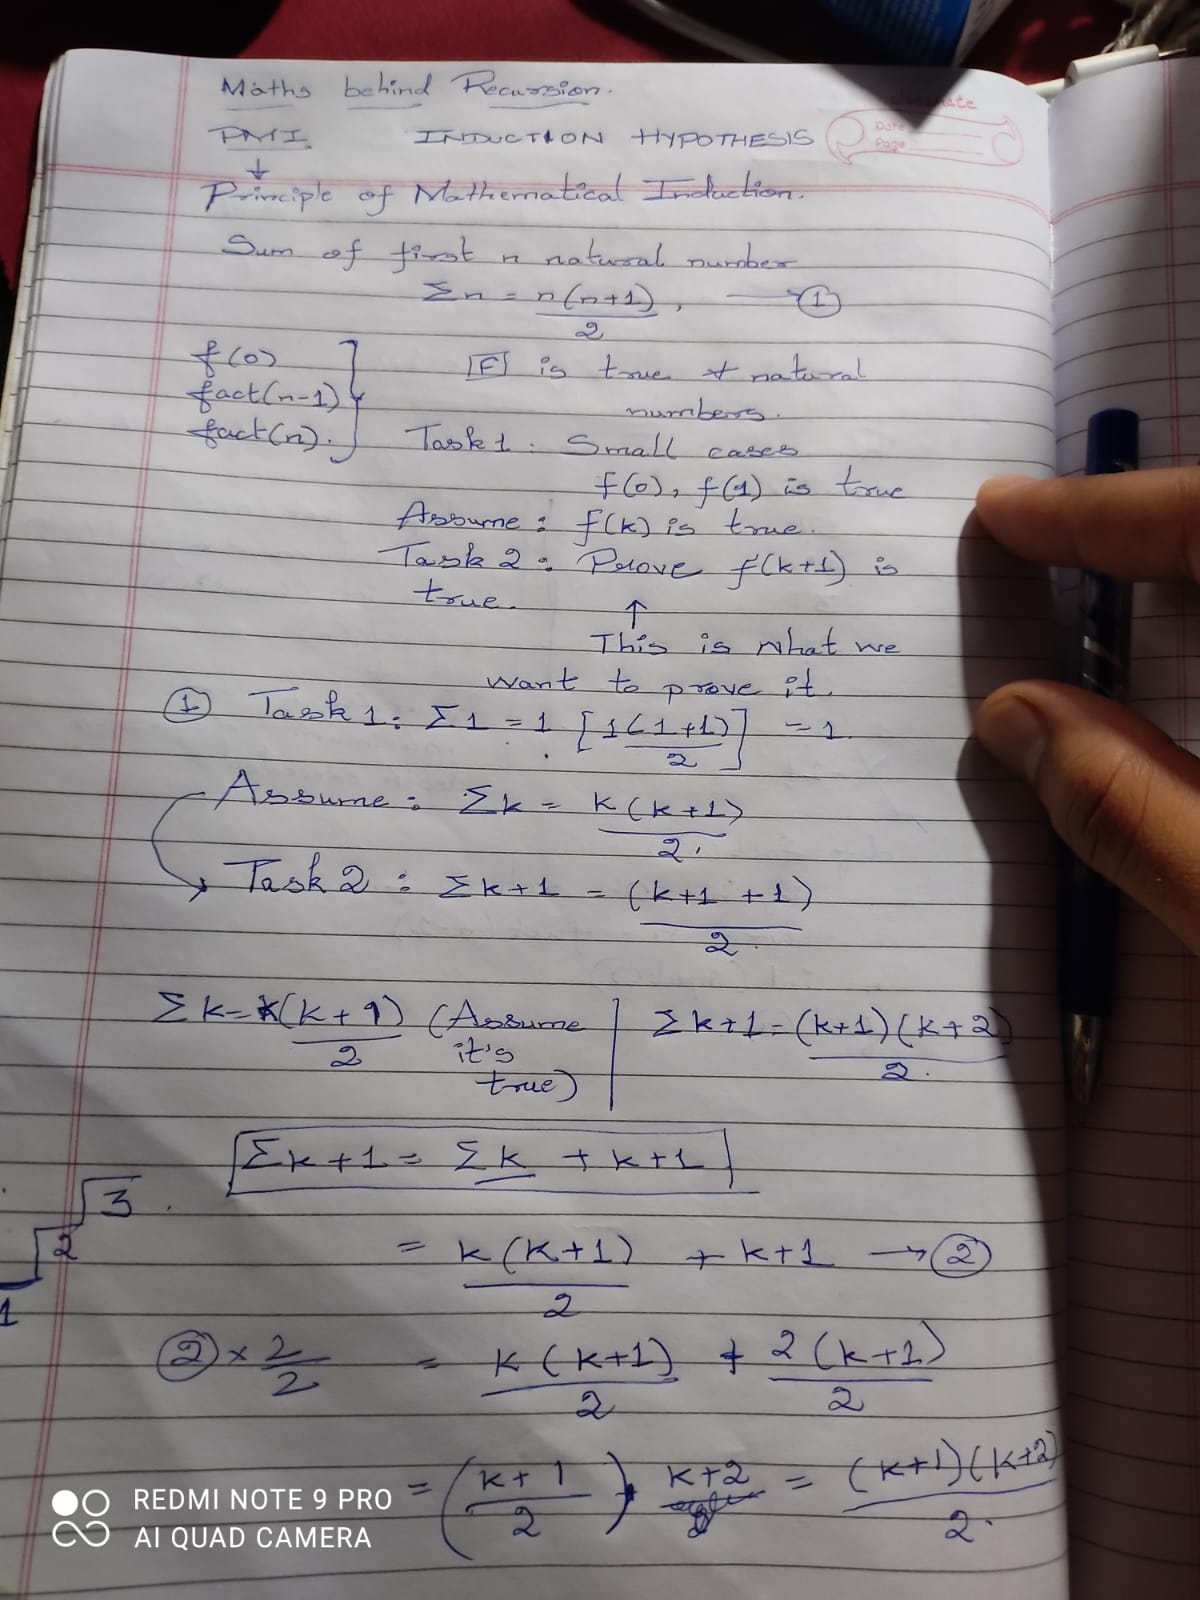 Maths behind Recursion.
PMI INDUCTION HYPOTHESIS
Date
Page
↓
Principle of Mathematical Induction.
Sum of first n natural number
Σn = n(n+1)/2 , → ①
f(0)
fact(n-1)
fact(n).
F is true ∀ natural
numbers.
Task 1 : Small cases
f(0), f(1) is true
Assume : f(k) is true.
Task 2 : Prove f(k+1) is
true.
↑
This is what we
want to prove it.
① Task 1 : Σ1 = 1 [1(1+1)/2] = 1.
Assume : Σk = k(k+1)/2.
Task 2 : Σk+1 = (k+1 +1)/2.
Σk = k(k+1)/2 (Assume
it's
true)
Σk+1 = (k+1)(k+2)/2.
Σk+1 = Σk + k+1
3
2
1
= k(k+1)/2 + k+1 → ②
② × 2/2 = k(k+1)/2 + 2(k+1)/2
= (k+1/2) . k+2 = (k+1)(k+2)/2.
REDMI NOTE 9 PRO
AI QUAD CAMERA